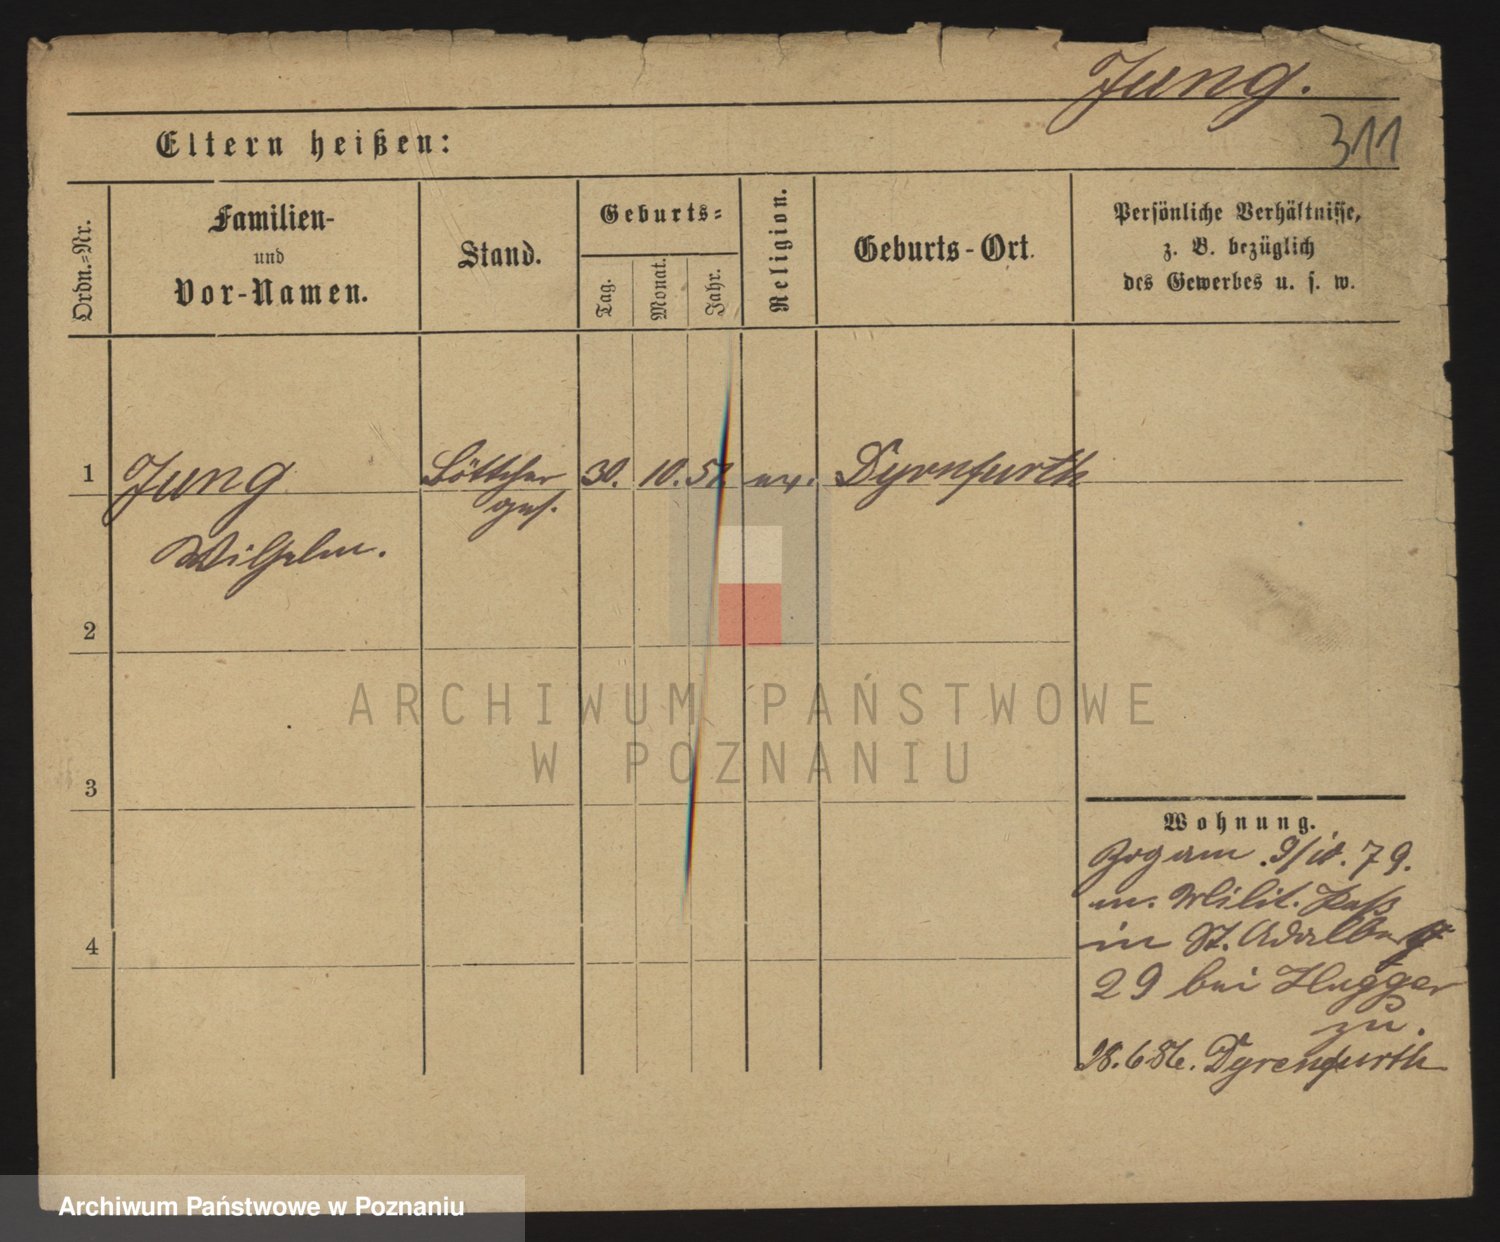 Jung.
311
Eltern heißen:
Ordn.-Nr.
Familien-
und
Vor-Namen.
Stand.
Geburts-
Tag.
Monat.
Jahr.
Religion.
Geburts-Ort.
Persönliche Verhältnisse,
z. B. bezüglich
des Gewerbes u. s. w.
1
Jung
Wilhelm.
Böttcher
ges.
30. 10. 52
ev.
Dyrnfurth
2
3
4
ARCHIWUM PAŃSTWOWE
W POZNANIU
Wohnung.
Zog am 9/10. 79.
m. Milit. Paß
in St. Adalbert
29 bei Hugger
zu.
28.6.86. Dyrenfurth
Archiwum Państwowe w Poznaniu